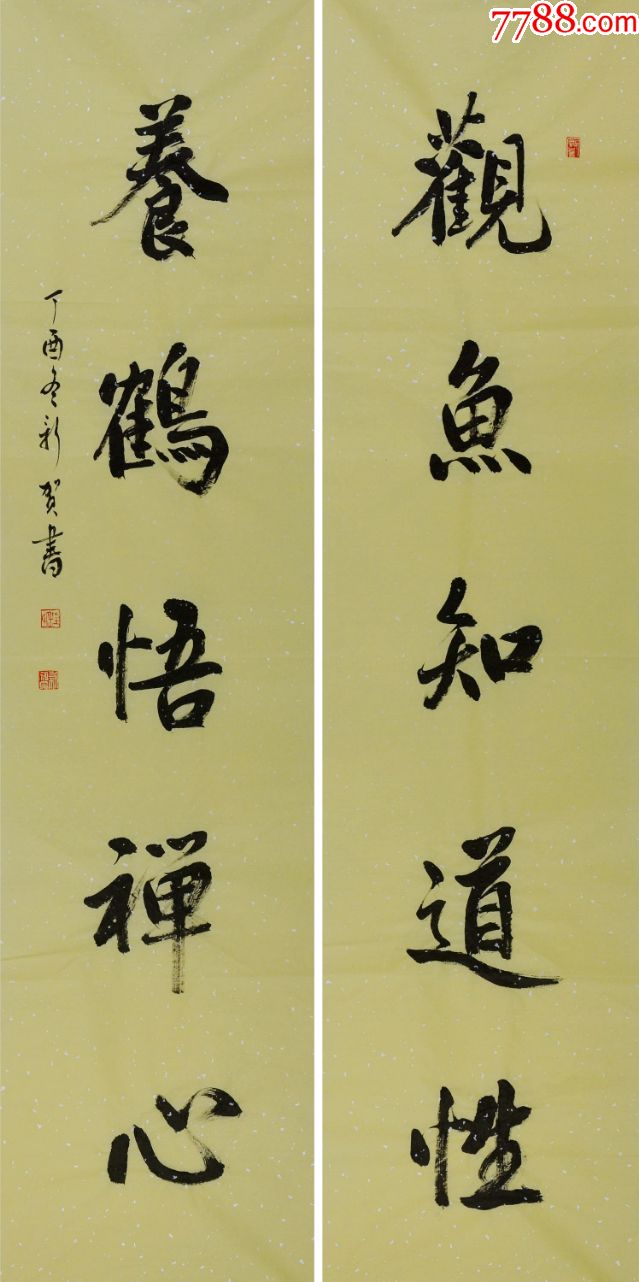 7788.com
觀魚知道性
養鶴悟禪心
丁酉冬新賀書